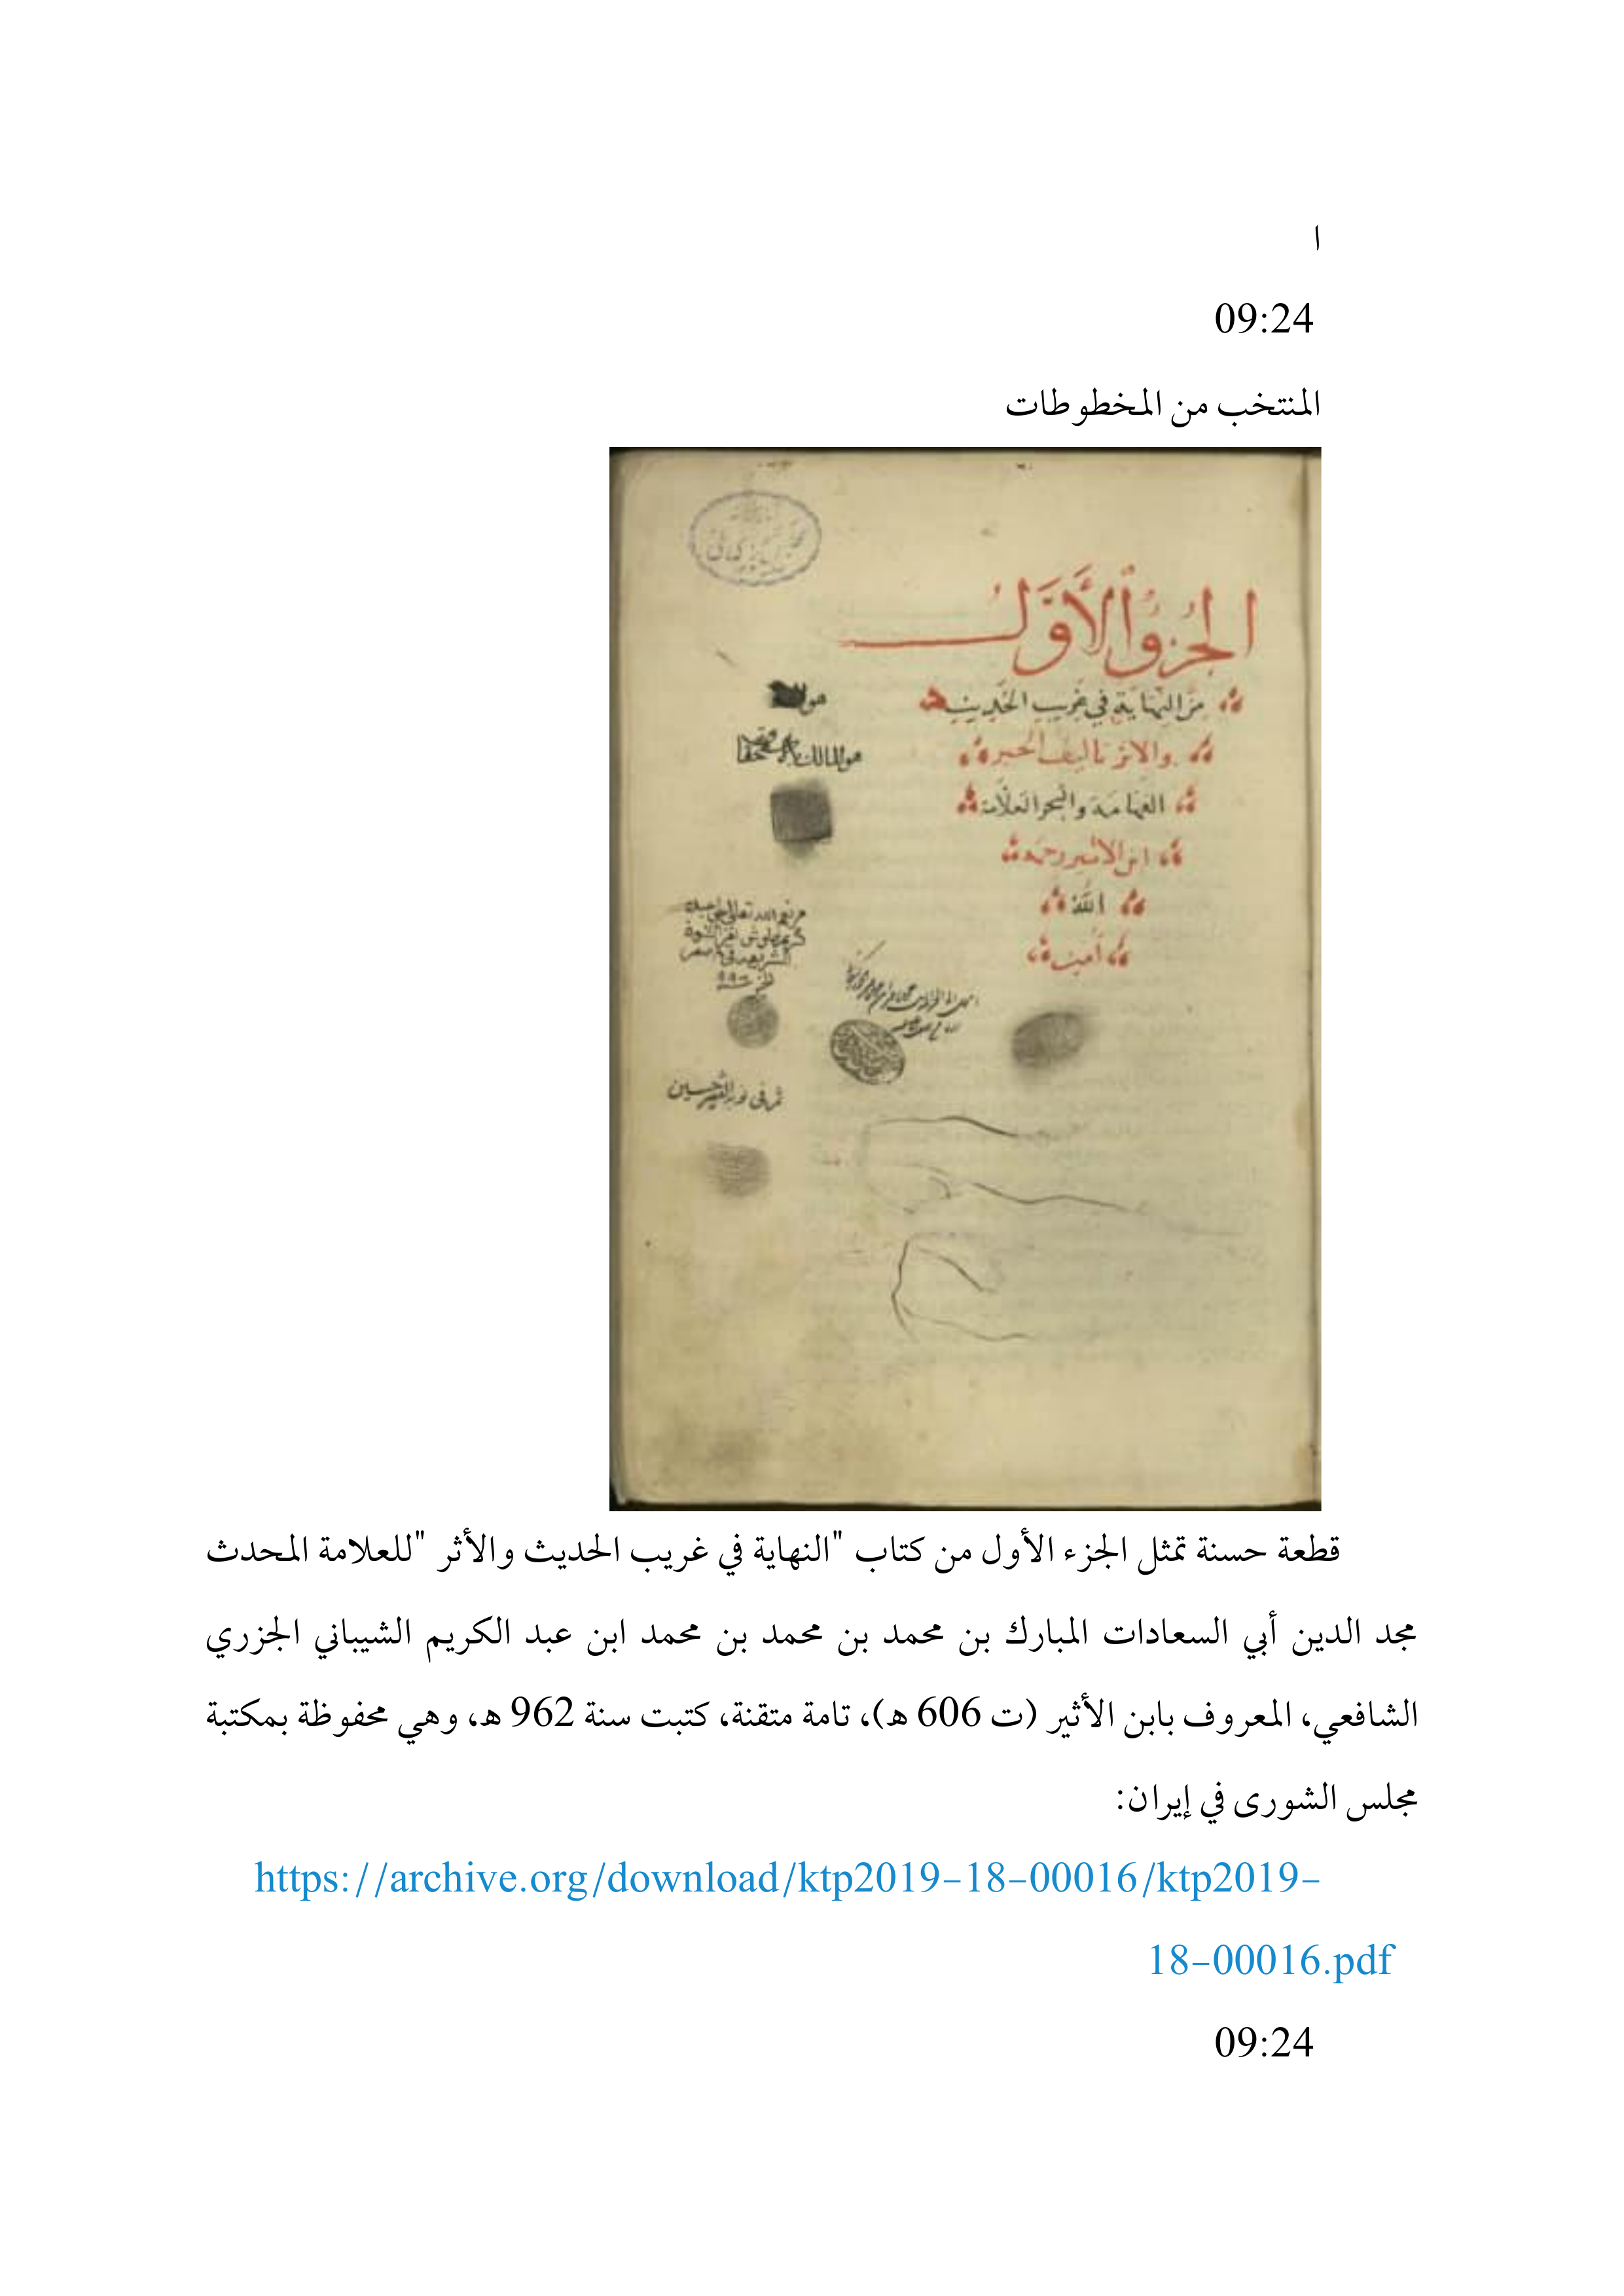 ا
09:24
المنتخب من المخطوطات
الجزؤ الأول
من النهاية في غريب الحديث
والاثر تاليف الحبر
الفهامة والبحر العلامة
ابن الاثير رحمه
الله
آمين
قطعة حسنة تمثل الجزء الأول من كتاب "النهاية في غريب الحديث والأثر "للعلامة المحدث
مجد الدين أبي السعادات المبارك بن محمد بن محمد بن محمد ابن عبد الكريم الشيباني الجزري
الشافعي، المعروف بابن الأثير (ت 606 ه)، تامة متقنة، كتبت سنة 962 ه، وهي محفوظة بمكتبة
مجلس الشورى في إيران:
https://archive.org/download/ktp2019-18-00016/ktp2019-
18-00016.pdf
09:24